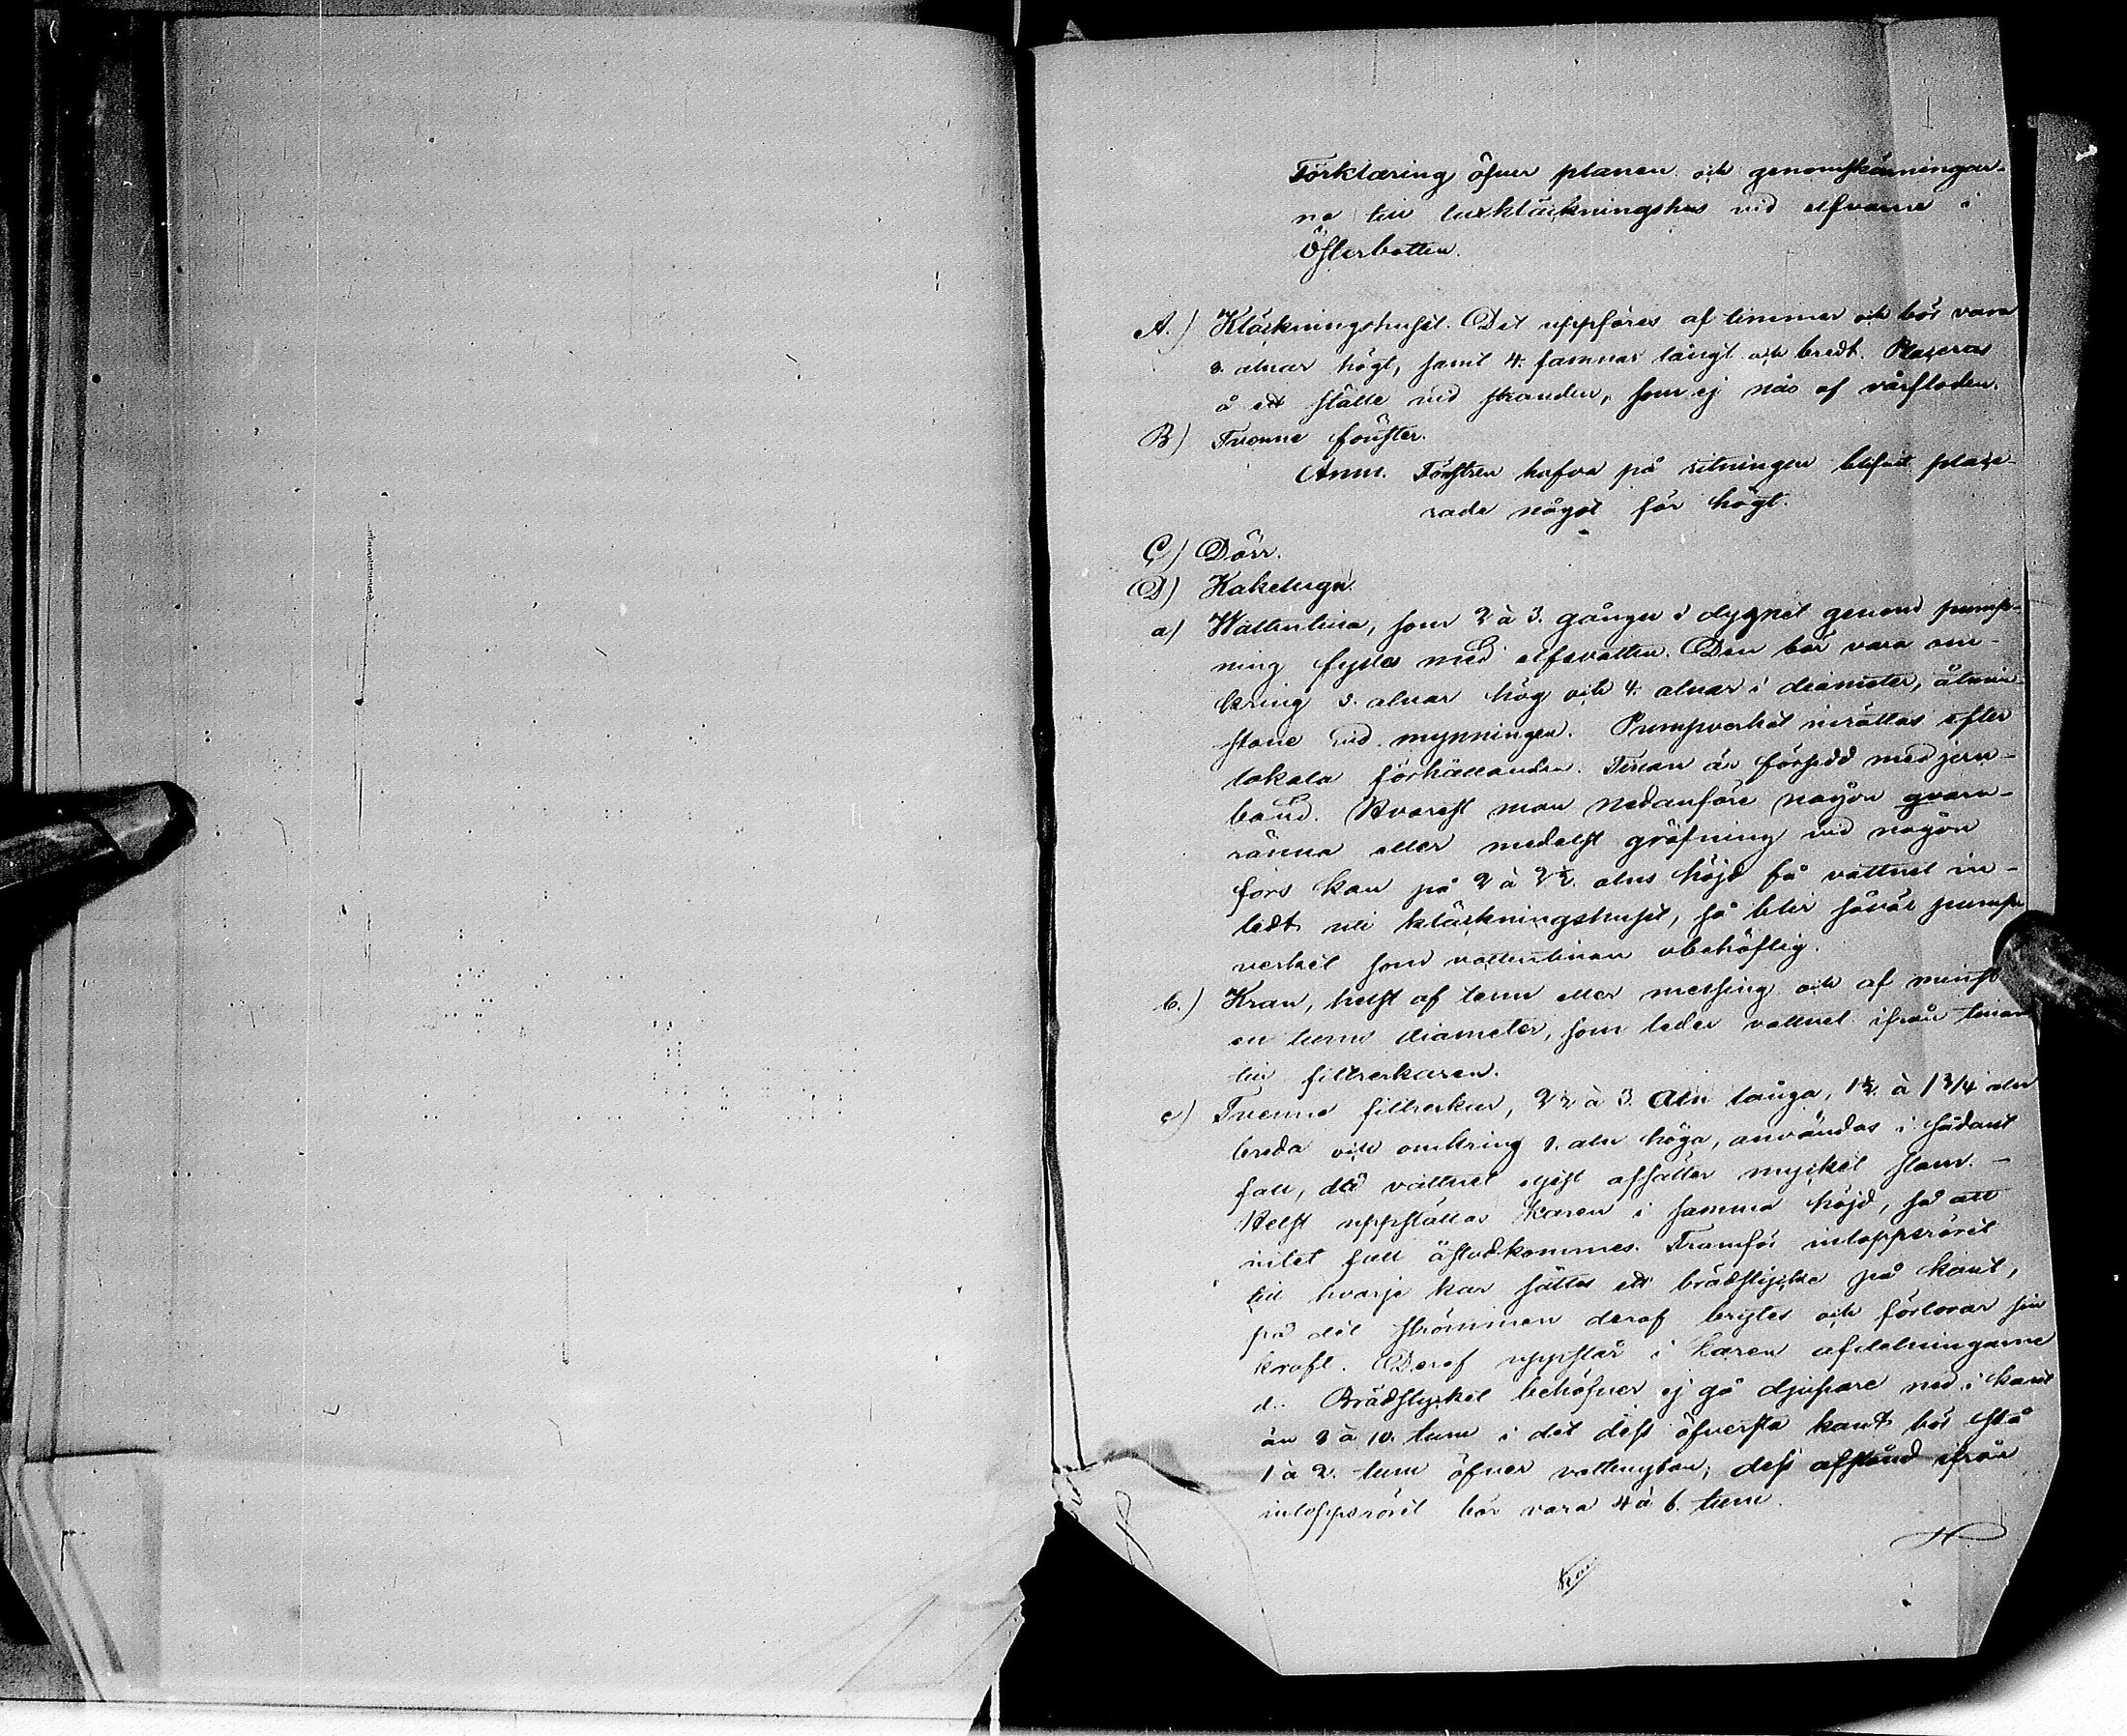 Förklaring öfver planen och genomskärningar-
na till laxkläckningshus vid elfvarne i
Österbotten.
A.) Kläckningshuset. Det uppföres af timmer och bör vara
3. alnar högt, samt 4. famnar långt och bredt. Placeras
å ett ställe vid stranden, som ej nås af vårfloden.
B) Tvenne fönster.
Anm. Fönstren hafva på ritningen blifvit place-
rade något för högt.
C) Dörr.
D) Kakelugn.
a) Wattentina, som 2 à 3. gånger i dygnet genom pump-
ning fylles med elfsvatten. Den bör vara om-
kring 3. alnar hög och 4. alnar i diameter, åtmin-
stone vid mynningen. Pumpverket inrättas efter
lokala förhållanden. Tinan är försedd med jern-
band. Hvarest man nedanföre någon qvarn-
ränna eller medelst gräfning vid någon
fors kan på 2 à 2½. alns höjd få vattnet in-
ledt uti kläckningshuset, så blir såväl pump-
verket som vattentinan obehöflig.
b.) Kran, helst af tenn eller messing och af minst
en tums diameter, som leder vattnet ifrån tinan
till filtrerkaren.
c) Tvenne filtrerkar, 2½ à 3. Aln långa, 1½. à 1 3/4 aln
breda och omkring 1. aln höga, användas i sådant
fall, då vattnet eljest afsätter mycket slam. –
Helst uppställas karen i samma höjd, så att
intet fall åstadkommes. Framför inloppsröret
till hvarje kar sättes ett brädstycke på kant,
på det strömmen deraf brytes och förlorar sin
kraft. Deraf uppstår i karen afdelningarne
d. Brädstycket behöfver ej gå djupare ned i karet
än 8 à 10. tum i det dess öfversta kant bör stå
1 à 2. tum öfver vattenytan; dess afstånd ifrån
inloppsröret bör vara 4 à 6. tum.